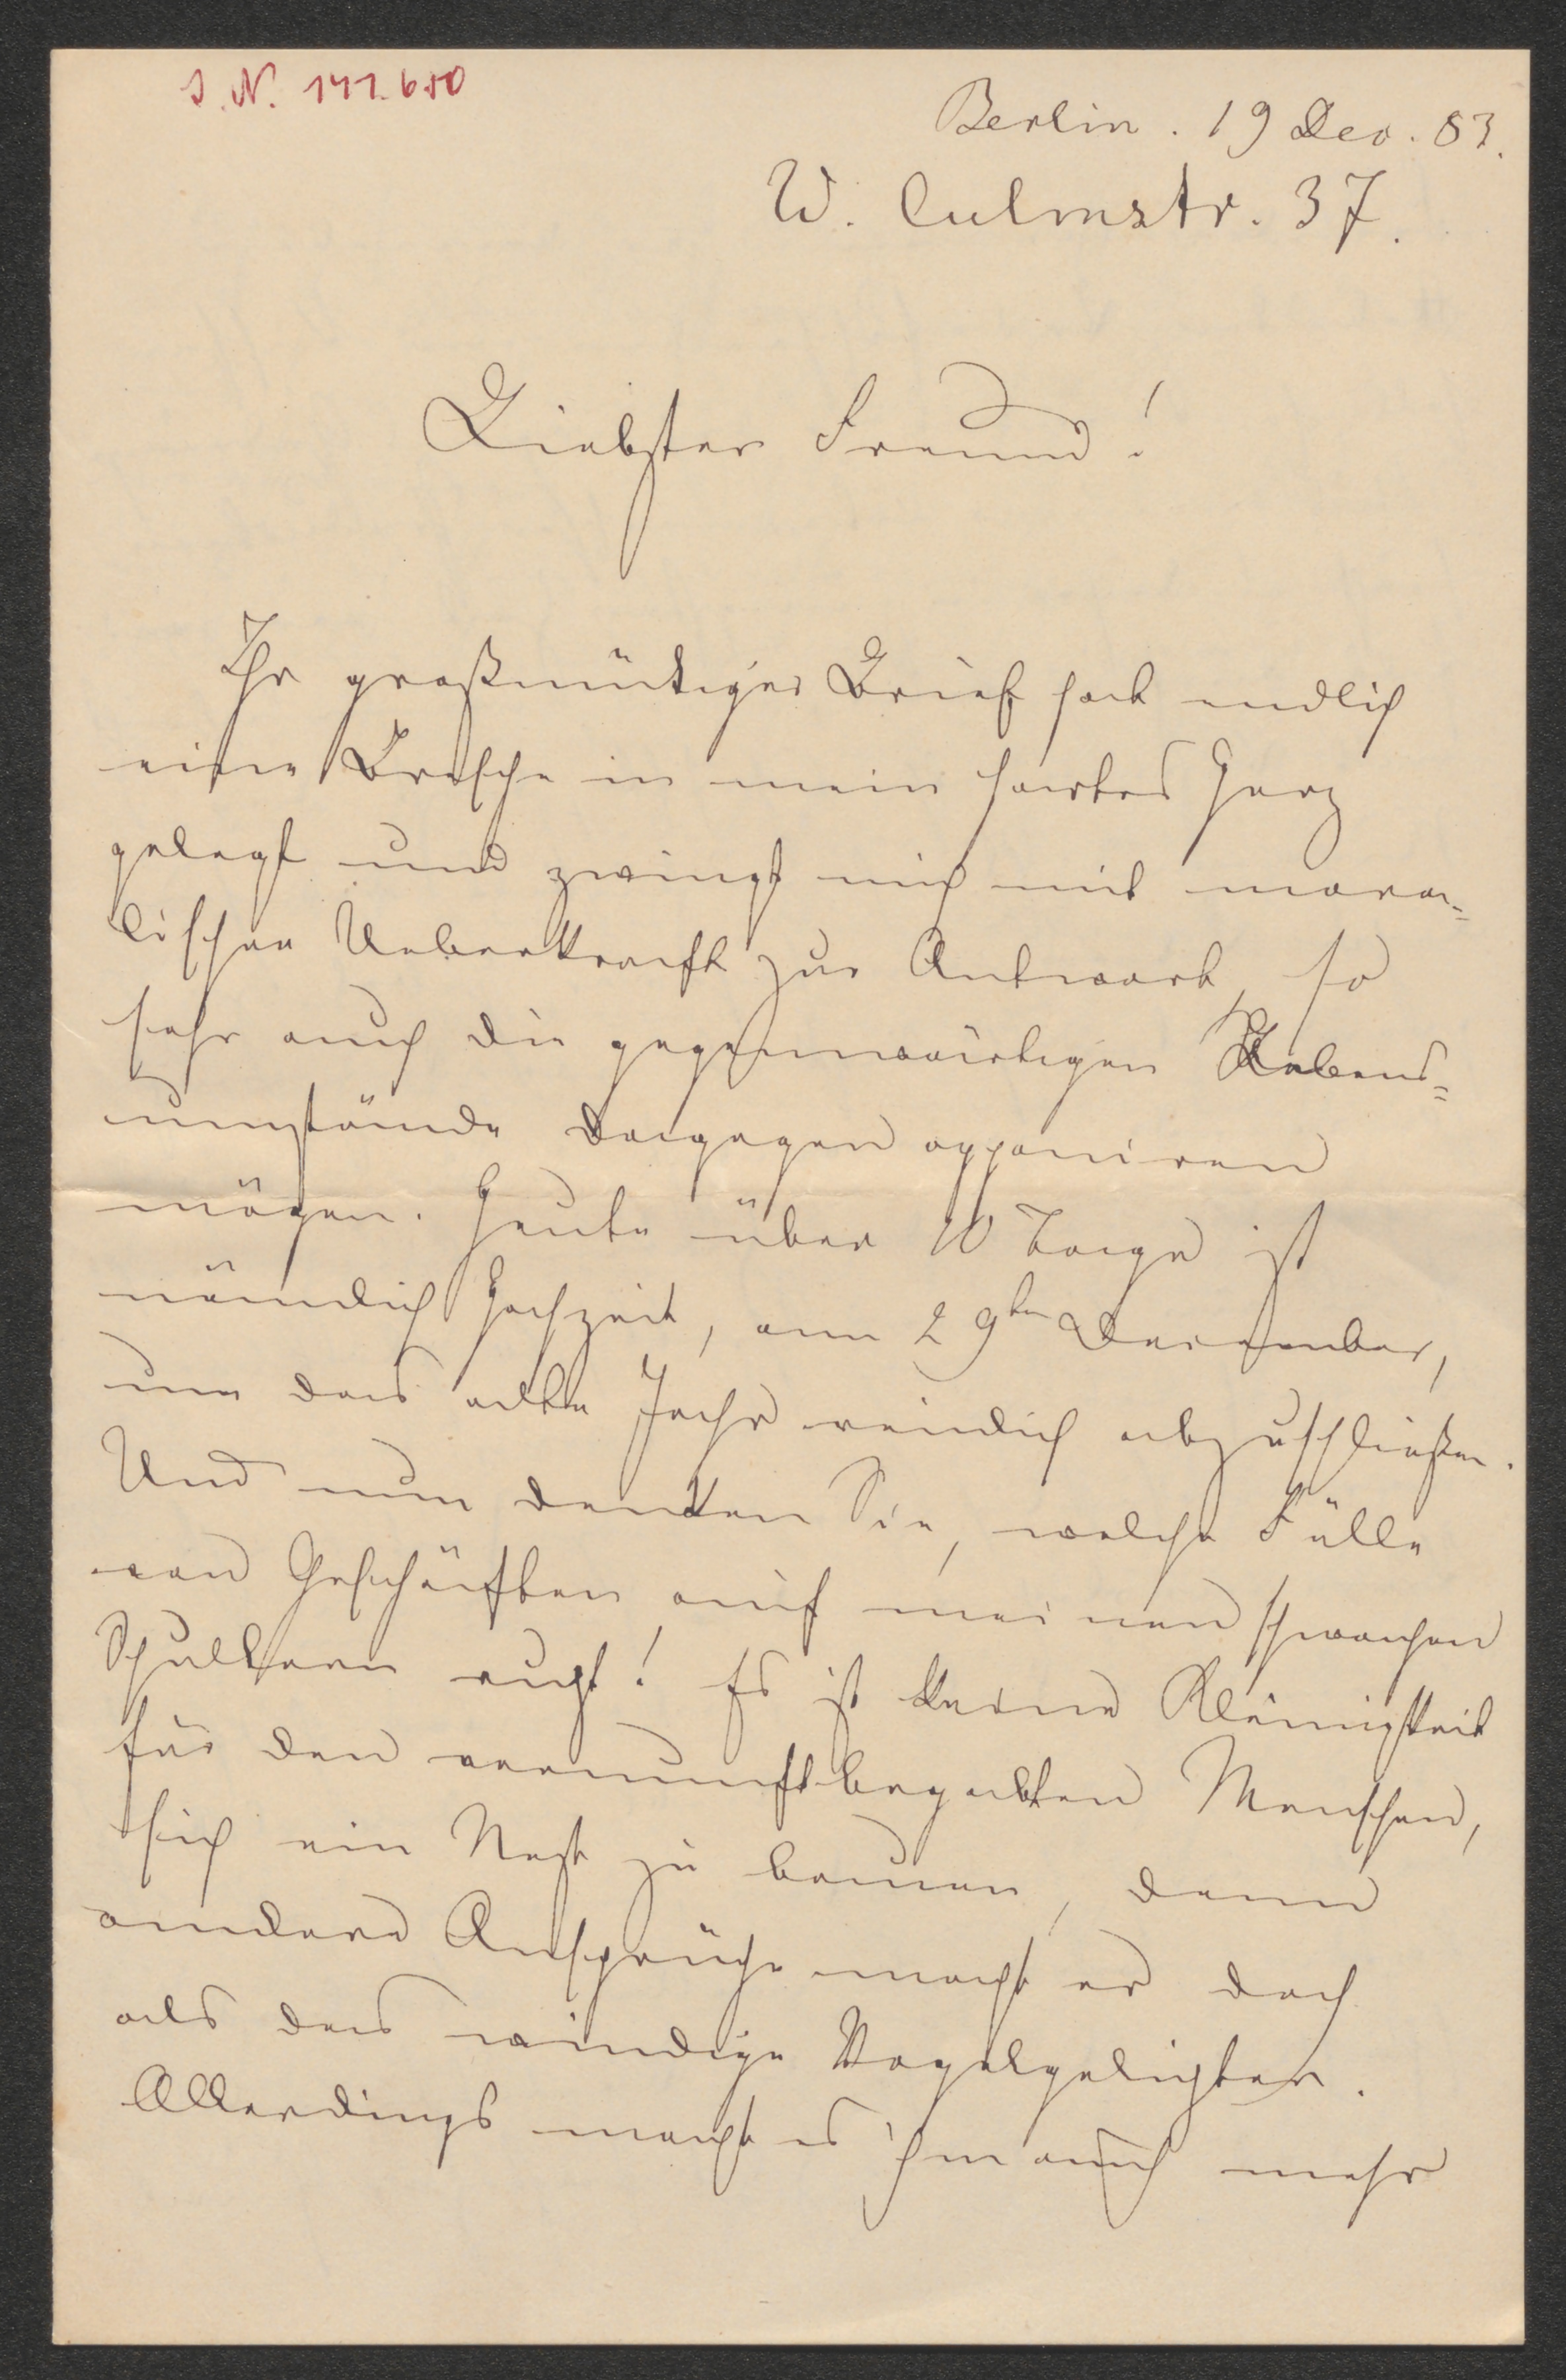 J. N. 141.650
Berlin. 19 Dec. 83.
W. Culmstr. 37.
Liebster Freund!
Ihr großmütiger Brief hat endlich
eine Bresche in mein hartes Herz
gelegt und zwingt mich mit mora-
lischer Ueberkraft zur Antwort, so
sehr auch die gegenwärtigen Lebens-
umstände dagegen opponiren
mögen. Heute über 10 Tage ist
nämlich Hochzeit, am 29ten Dezember,
um das alte Jahr reinlich abzuschließen.
Und nun denken Sie, welche Fülle
von Geschäften auf meinen schwachen
Schultern ruht! Es ist keine Kleinigkeit
für den vernunftbegabten Menschen,
sich ein Nest zu bauen, denn
andere Ansprüche macht er doch
als das windige Vogelgelichter.
Allerdings macht es ihm auch mehr